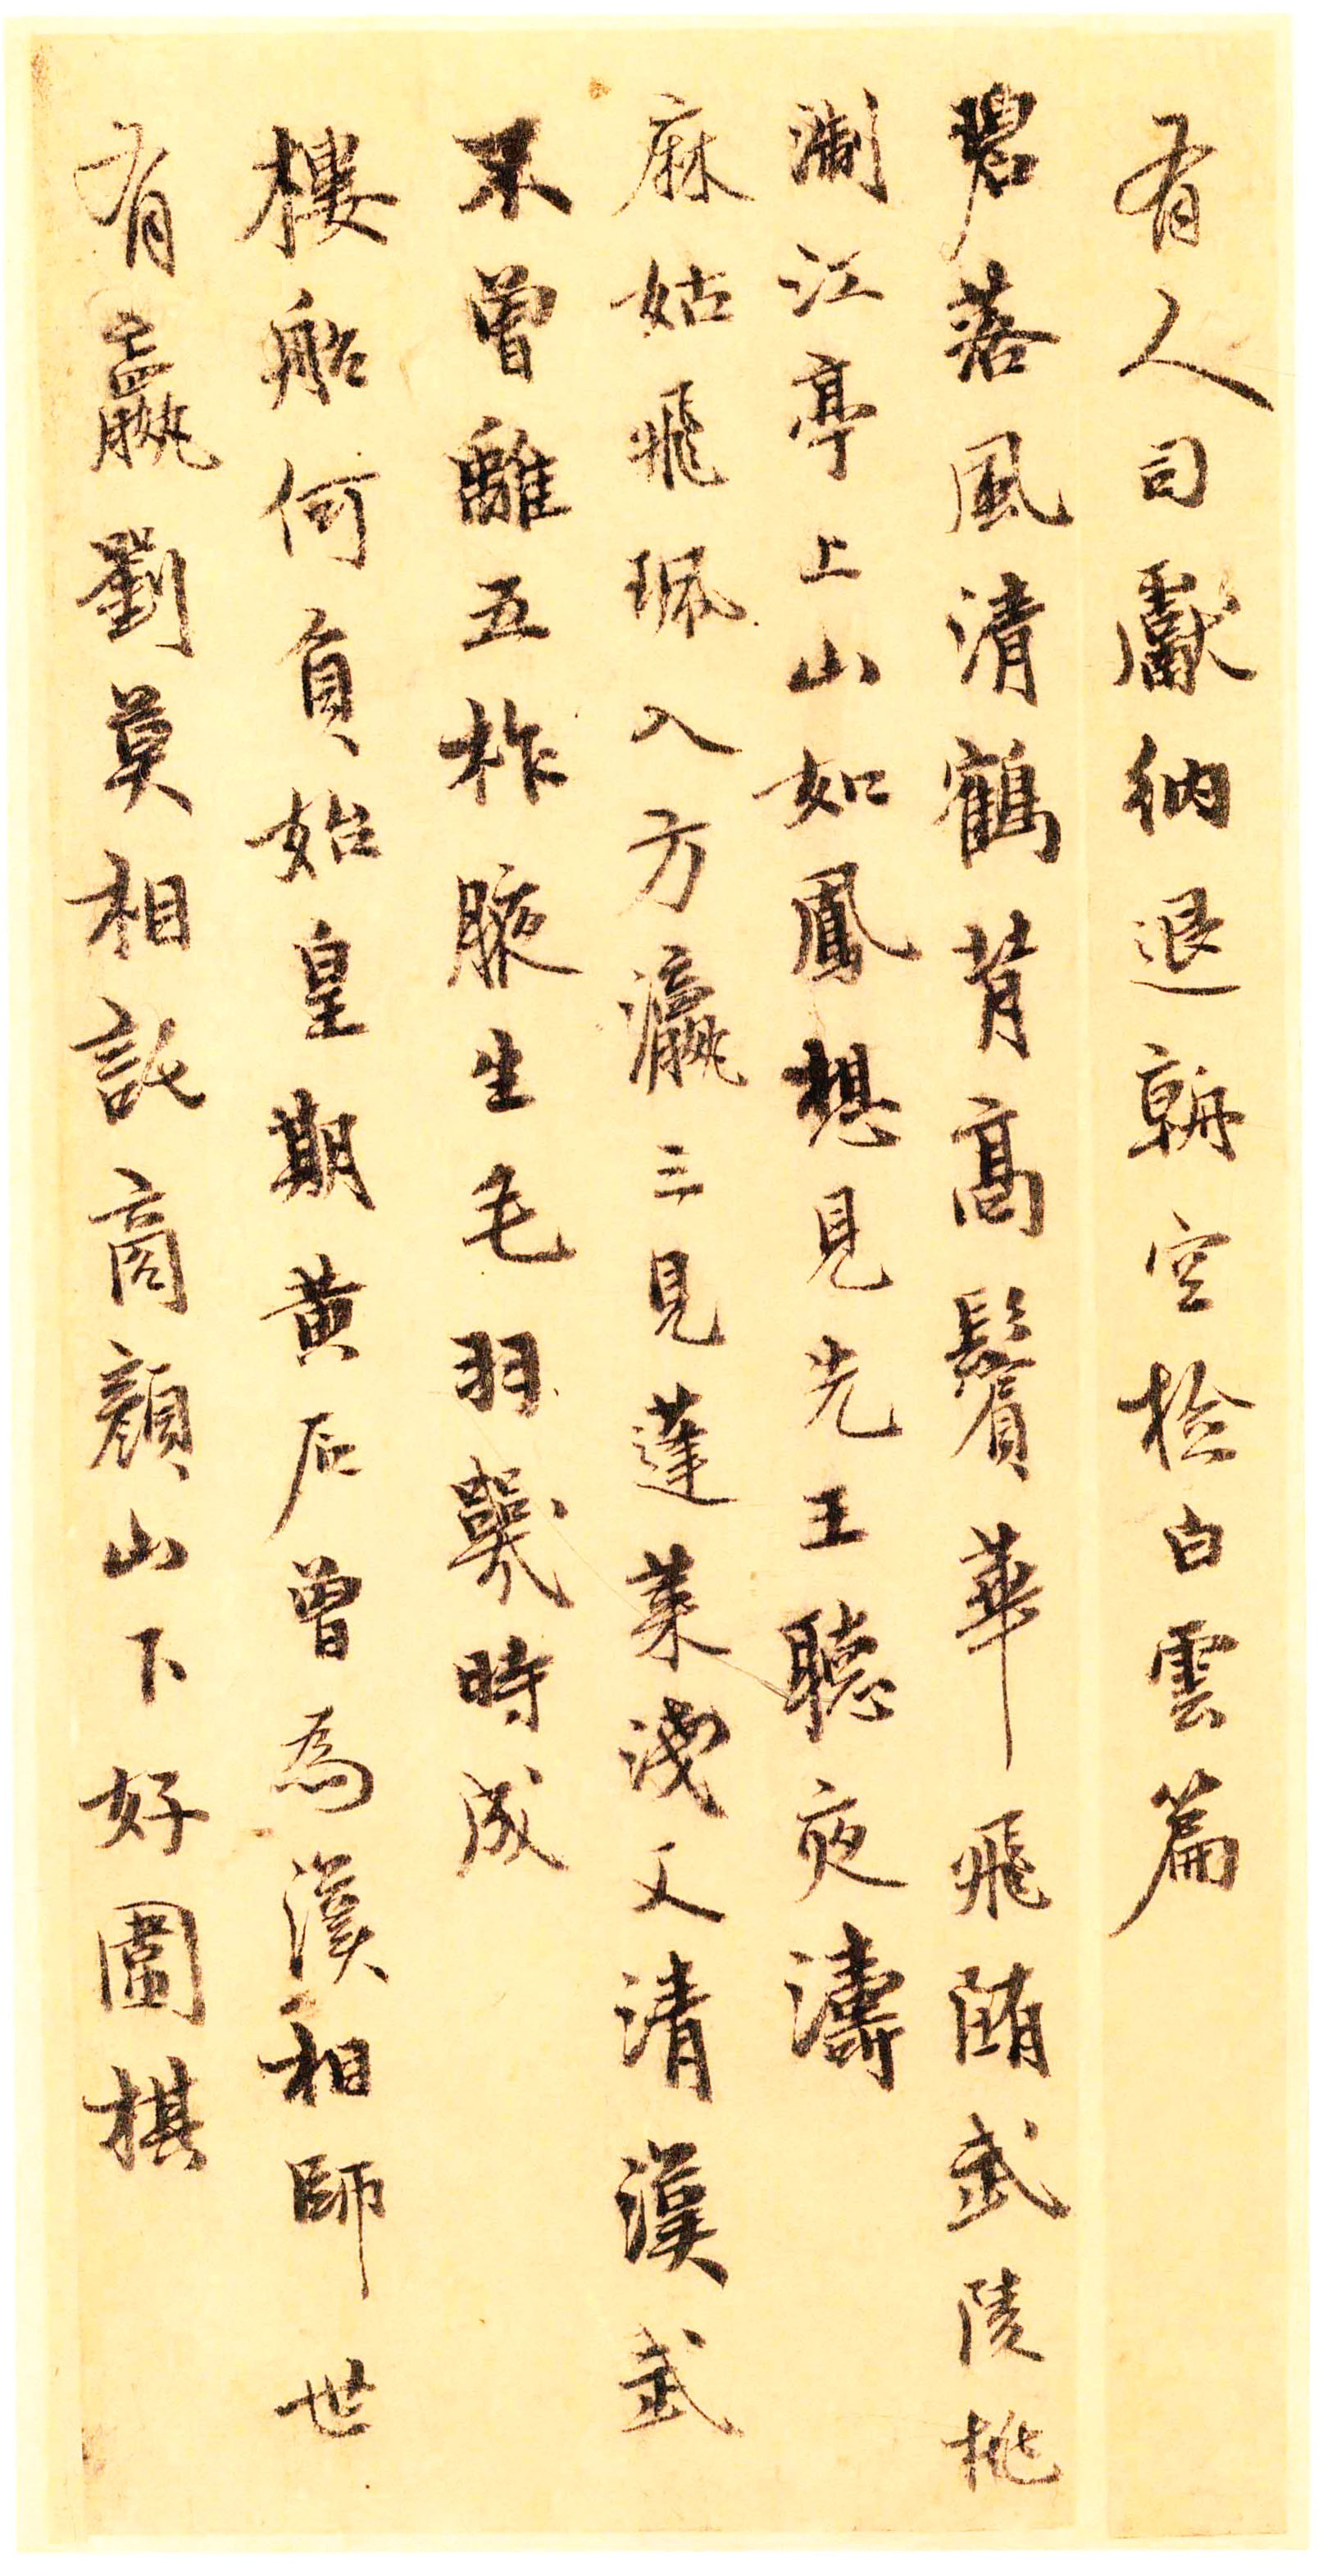 有人司獻納退朝空捡白雲篇
碧落風清鶴背高鬢華飛踏武陵桃
淛江亭上山如鳳想見先王聽夜濤
麻姑飛珮入方瀛三見蓬萊淺又清漢武
不曾離五柞腋生毛羽幾時成
樓船何負始皇期黃石曾為漢相師世
有嬴劉莫相託商顏山下好圍棋